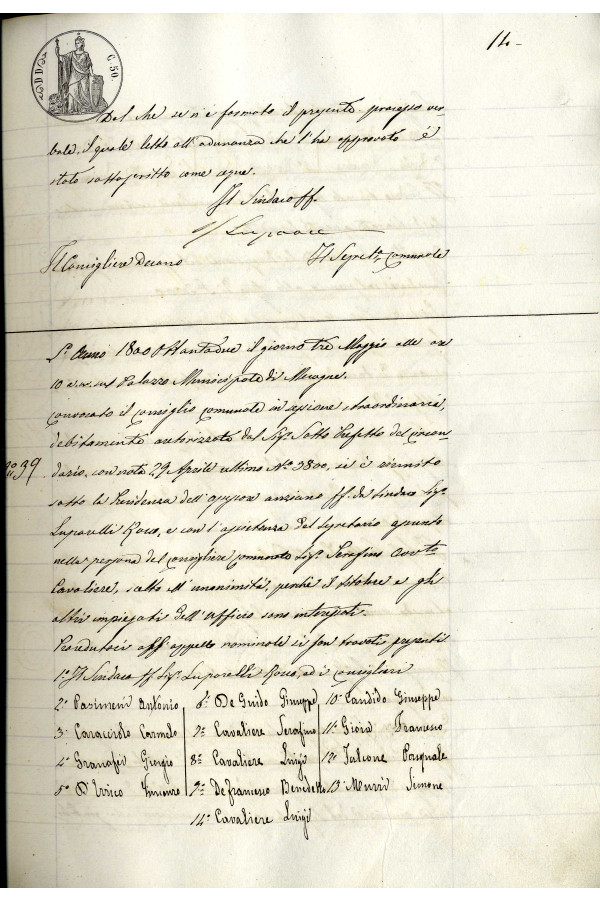 14-
C. 50.
Del che se n'è formato il presente processo ver-
bale, il quale letto all'adunanza che l'ha approvato è
stato sottoscritto come segue.
Il Sindaco ff.
Il Consigliere Decano Il Segret. Comunale
L'Anno 1800 Ottantadue il giorno tre Maggio alle ore
10 a.m. sul Palazzo Municipale di Mesagne.
Convocato il Consiglio comunale in sessione straordinaria,
debitamente autorizzato dal Sig. Sotto Prefetto del Circon-
No 39
dario, con nota 29 Aprile ultimo No. 3800, si è riunito
sotto la Presidenza dell'assessore anziano ff. da Sindaco Sig.
Luparelli Roco, e con l'assistenza del Segretario assunto
nella persona del consigliere comunale Sig. Serafino
Cavaliere, scelto all'unanimità, perché il titolare e gli
altri impiegati dell'Ufficio sono interessati.
Procedutosi all'appello nominale si son trovati presenti
1° Il Sindaco ff Sig. Luparelli Roco, ed i Consiglieri
2° Pasimeni Antonio 6° De Guido Giuseppe 10° Candido Giuseppe
3° Caracciolo Carmelo 7° Cavaliere Serafino 11° Gioia Francesco
4° Granafei Giorgio 8° Cavaliere Luigi 12° Falcone Pasquale
5° D'Errico Vincenzo 9° Defrancesco Benedetto 13° Murri Simone
14° Cavaliere Luigi